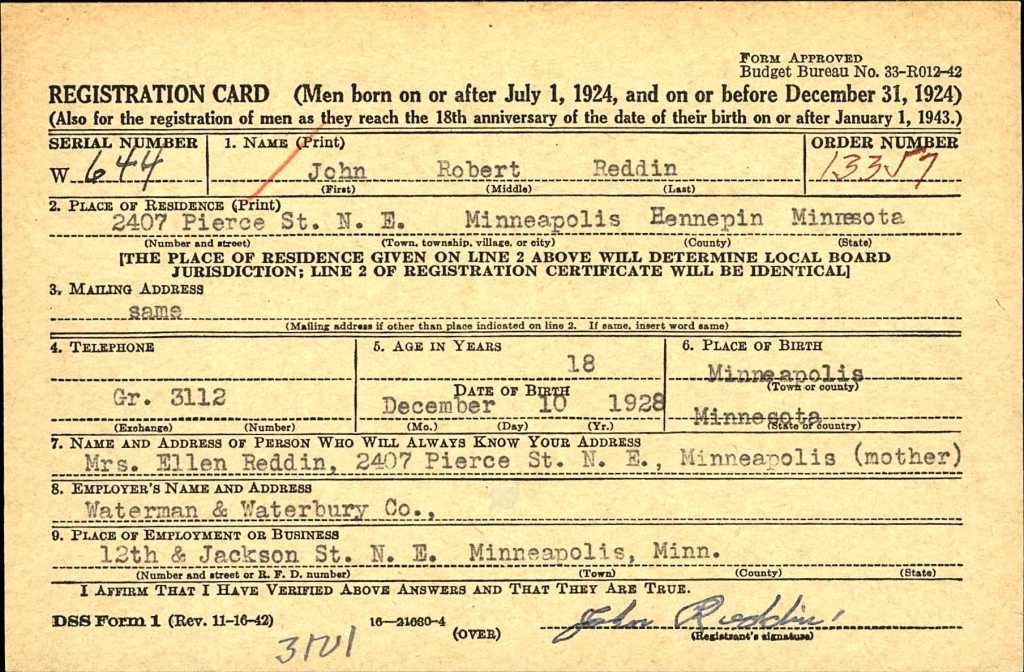 FORM APPROVED
Budget Bureau No. 33-R012-42
REGISTRATION CARD (Men born on or after July 1, 1924, and on or before December 31, 1924)
(Also for the registration of men as they reach the 18th anniversary of the date of their birth on or after January 1, 1943.)
SERIAL NUMBER 1. NAME (Print) ORDER NUMBER
W 644 John Robert Reddin 13357
(First) (Middle) (Last)
2. PLACE OF RESIDENCE (Print)
2407 Pierce St. N. E. Minneapolis Hennepin Minnesota
(Number and street) (Town, township, village, or city) (County) (State)
[THE PLACE OF RESIDENCE GIVEN ON LINE 2 ABOVE WILL DETERMINE LOCAL BOARD
JURISDICTION; LINE 2 OF REGISTRATION CERTIFICATE WILL BE IDENTICAL]
3. MAILING ADDRESS
same
(Mailing address if other than place indicated on line 2. If same, insert word same)
4. TELEPHONE 5. AGE IN YEARS 6. PLACE OF BIRTH
18 Minneapolis
(Town or county)
DATE OF BIRTH
Gr. 3112 December 10 1928 Minnesota
(Exchange) (Number) (Mo.) (Day) (Yr.) (State or country)
7. NAME AND ADDRESS OF PERSON WHO WILL ALWAYS KNOW YOUR ADDRESS
Mrs. Ellen Reddin, 2407 Pierce St. N. E., Minneapolis (mother)
8. EMPLOYER'S NAME AND ADDRESS
Waterman & Waterbury Co.,
9. PLACE OF EMPLOYMENT OR BUSINESS
12th & Jackson St. N. E. Minneapolis, Minn.
(Number and street or R. F. D. number) (Town) (County) (State)
I AFFIRM THAT I HAVE VERIFIED ABOVE ANSWERS AND THAT THEY ARE TRUE.
DSS Form 1 (Rev. 11-16-42) 16—21630-4 (OVER) John Reddin
(Registrant's signature)